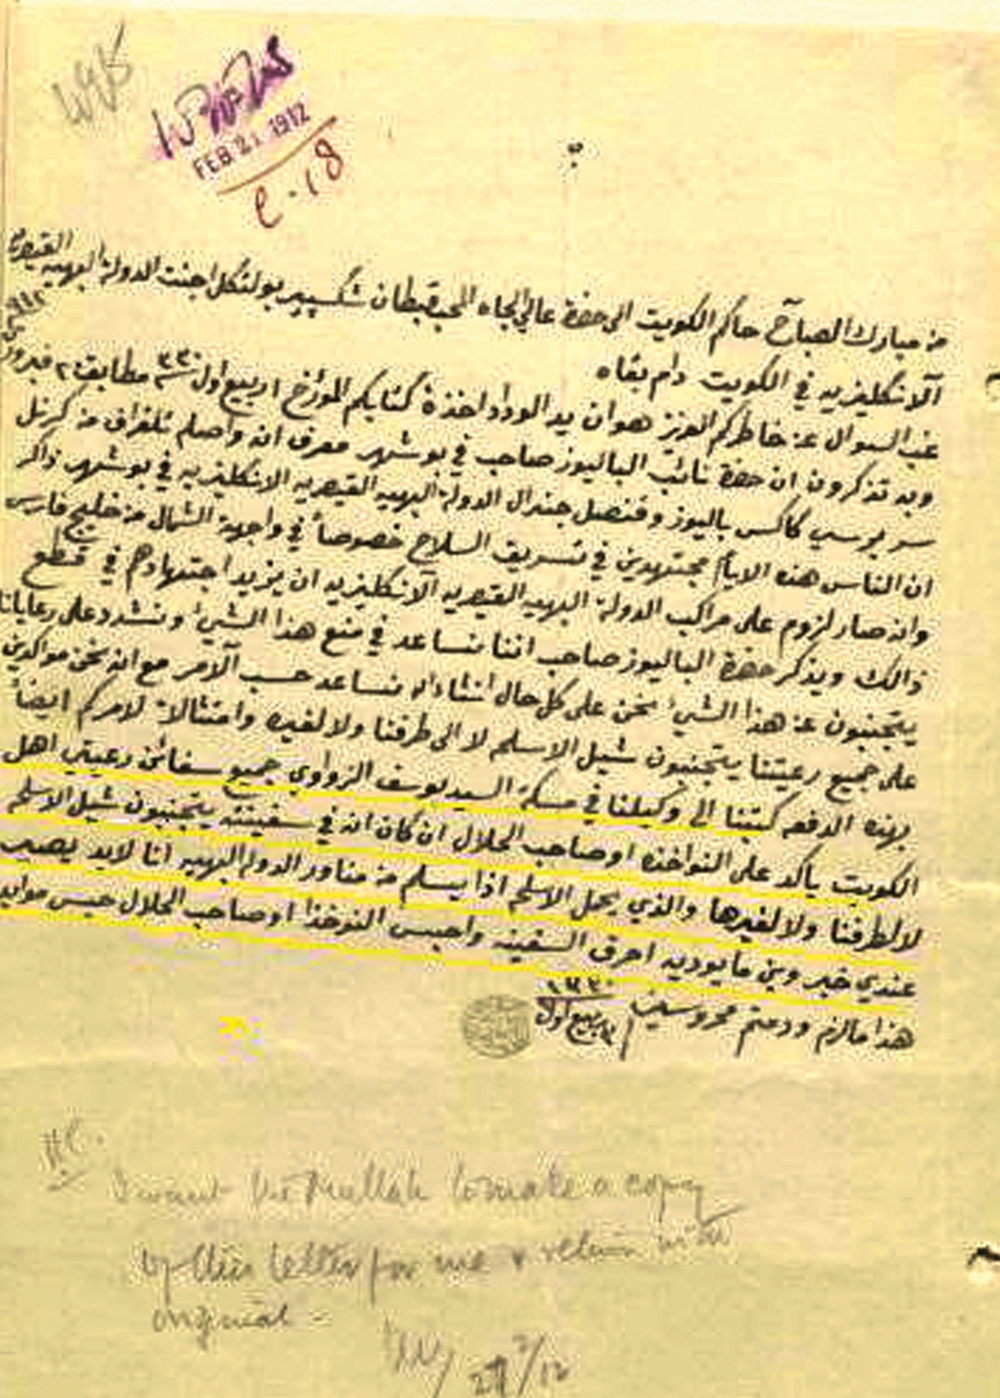 FEB 21 1912
C-18
من مبارك الصباح حاكم الكويت الى حضرة عالي الجاه المحب قبطان شكسبير بولتكل اجنت الدولة البهيه القيصريه
الانكليزيه في الكويت دام بقاه
غب السوال عن خاطركم العزيز هو ان بيد الوداد اخذة كتابكم المؤرخ ربيع اول ٣٣٠ مطابق ٢٠ فبرور
وبه تذكرون ان حضرة نائب الباليوز صاحب في بوشهر معرف انه واصلم تلغراف من كرنل
سر برسي كاكس باليوز وقنصل جنرال الدولة البهيه القيصريه الانكليزيه في بوشهر ذاكر
ان الناس هذه الايام مجتهدين في تسريق السلاح خصوصاً في واجهة الشمال من خليج فارس
وانه صار لزوم على مراكب الدولة البهيه القيصريه الانكليزيه ان يزيد اجتهادهم في قطع
ذالك ويذكر حضرة الباليوز صاحب اننا نساعد في منع هذا الشيء ونشدد على رعايانا
يتجنبون عن هذا الشيء نحن على كل حال انشاءالله نساعد حسب الامر مع انه نحن مواكدين
على جميع رعيتنا يتجنبون شيل الاسلحه لا الى طرفنا ولا لغيره وامتثالاً لامركم ايضاً
بهذه الدفعه كتبنا الى وكيلنا في مسكة السيد يوسف الزواوي جميع سفائن رعيتي اهل
الكويت ياكد على النواخذه او صاحب الحلال ان كان انه في سفينته يتجنبون شيل الاسلحه
لا لطرفنا ولا لغيرها والذي يحمل الاسلحه اذا يسلم من مناور الدوله البهيه انا لابد يصير
عندي خبر وين ما يوديه احرق السفينه واحبس النوخذا او صاحب الحلال حبس موابد
هذا مالزم ودمتم محروسين
ربيع اول ١٣٣٠
I want the Mullah to make a copy
of this letter for me & return with
original -
2/12